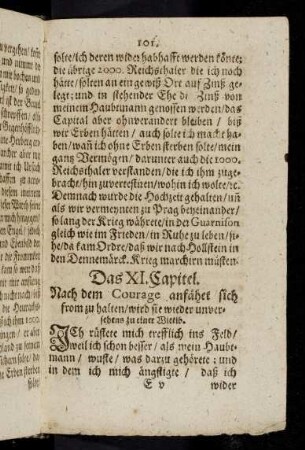 101.
solte/ich deren wider habhafft werden könte;
die übrige 2000. Reichsthaler die ich noch
hätte/solten an ein gewiß Ort auf Zinß ge-
legt; und in stehender Ehe di Zinß von
meinem Haubtmann genossen werden/das
Capital aber ohnverändert bleiben / biß
wir Erben hätten / auch solte ich macht ha-
ben/wañ ich ohne Erben sterben solte/mein
gantz Vermögen/ darunter auch die 1000.
Reichsthaler verstanden/die ich ihm zuge-
bracht/hin zuvertestiren/wohin ich wolte/rc.
Demnach wurde die Hochzeit gehalten/uñ
als wir vermeynten zu Prag beyeinander/
so lang der Krieg währete/in der Guarnison
gleich wie im Frieden/in Ruhe zu leben/si-
he/da kam Ordre/daß wir nach Hollstein in
den Dennemärck. Krieg marchirn müsten.
Das XI. Capitel.
Nach dem Courage anfähet sich
from zu halten/wird sie wieder unver-
sehens zu einer Wittib.
ICh rüstete mich trefflich ins Feld/
weil ich schon besser/als mein Haubt-
mann/ wuste/was darzu gehörete: und
in dem ich mich ängstigte/ daß ich
E v
wider